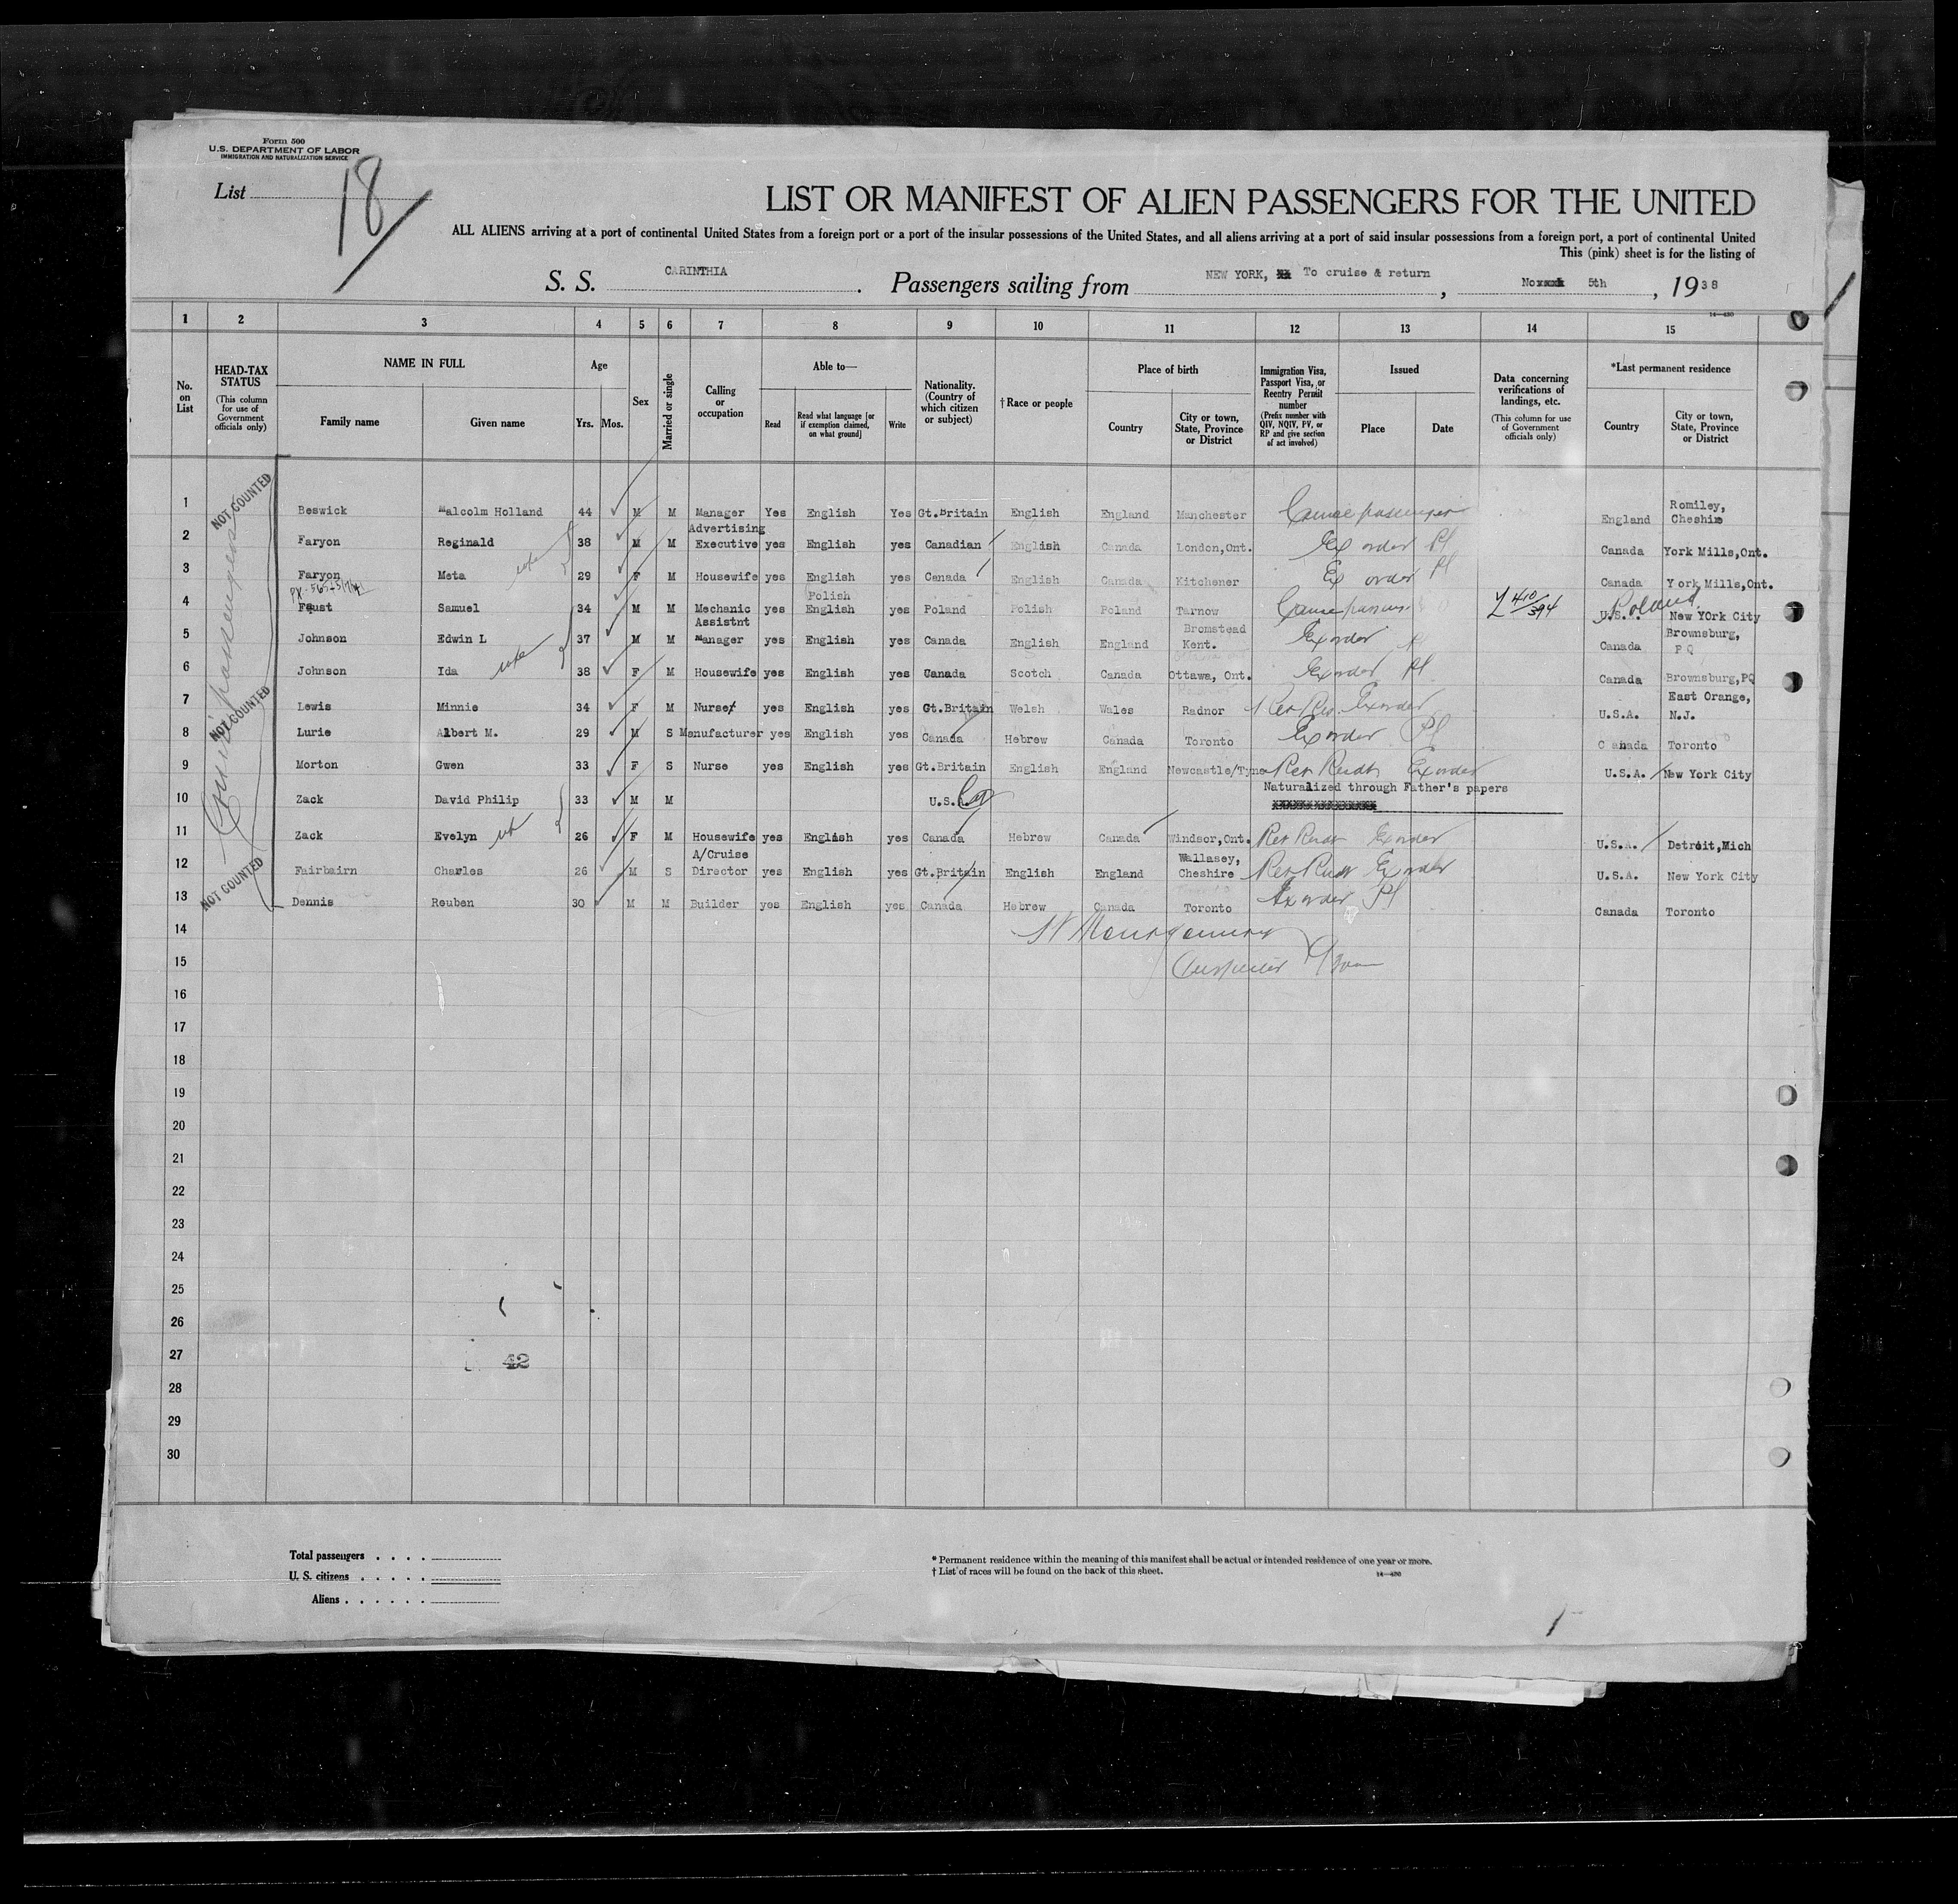 Form 500
U.S. DEPARTMENT OF LABOR
IMMIGRATION AND NATURALIZATION SERVICE
List 18
LIST OR MANIFEST OF ALIEN PASSENGERS FOR THE UNITED
ALL ALIENS arriving at a port of continental United States from a foreign port or a port of the insular possessions of the United States, and all aliens arriving at a port of said insular possessions from a foreign port, a port of continental United
This (pink) sheet is for the listing of
S. S. CARINTHIA. Passengers sailing from NEW YORK, To cruise & return, 5th, 1938
14—430
1 2 3 4 5 6 7 8 9 10 11 12 13 14 15
No. on List
HEAD-TAX STATUS (This column for use of Government officials only)
NAME IN FULL
Family name
Given name
Age
Yrs. Mos.
Sex
Married or single
Calling or occupation
Able to—
Read
Read what language [or if exemption claimed, on what ground]
Write
Nationality. (Country of which citizen or subject)
†Race or people
Place of birth
Country
City or town, State, Province or District
Immigration Visa, Passport Visa, or Reentry Permit number (Prefix number with QIV, NQIV, PV, or RP and give section of act involved)
Issued
Place
Date
Data concerning verifications of landings, etc. (This column for use of Government officials only)
*Last permanent residence
Country
City or town, State, Province or District
NOT COUNTED
NOT COUNTED
NOT COUNTED
1 Beswick Malcolm Holland 44 M M Manager Yes English Yes Gt.Britain English England Manchester Cruise passenger England Romiley, Cheshire
2 Faryon Reginald 38 M M Advertising Executive yes English yes Canadian English Canada London,Ont. Ex order Pl Canada York Mills,Ont.
3 Faryon Meta wife 29 F M Housewife yes English yes Canada English Canada Kitchener Ex order Pl Canada York Mills,Ont.
4 Faust Samuel 34 M M Mechanic yes Polish English yes Poland Polish Poland Tarnow 410/394 U.S.A. Poland New York City
5 Johnson Edwin L 37 M M Assistnt Manager yes English yes Canada English England Bromstead Kent. Ex order Canada Brownsburg, PQ
6 Johnson Ida wife 38 F M Housewife yes English yes Canada Scotch Canada Ottawa, Ont. Ex order Pl Canada Brownsburg,PQ
7 Lewis Minnie 34 F M Nurse yes English yes Gt.Britain Welsh Wales Radnor Ex order U.S.A. East Orange, N.J.
8 Lurie Albert M. 29 M S Manufacturer yes English yes Canada Hebrew Canada Toronto Ex order Pl Canada Toronto
9 Morton Gwen 33 F S Nurse yes English yes Gt.Britain English England Newcastle/Tyne Ret Resdt Ex order U.S.A. New York City
10 Zack David Philip 33 M M U.S.A. Naturalized through Father's papers
11 Zack Evelyn wf 26 F M Housewife yes English yes Canada Hebrew Canada Windsor,Ont. Ret Resdt Ex order U.S.A. Detroit,Mich
12 Fairbairn Charles 26 M S A/Cruise Director yes English yes Gt.Britain English England Wallasey, Cheshire Ret Resdt Ex order U.S.A. New York City
13 Dennis Reuben 30 M M Builder yes English yes Canada Hebrew Canada Toronto Ex order Pl Canada Toronto
14 Montgomery
15
16
17
18
19
20
21
22
23
24
25
26
27 42
28
29
30
Total passengers . . . .
U. S. citizens . . . . .
Aliens . . . . . .
* Permanent residence within the meaning of this manifest shall be actual or intended residence of one year or more.
† List of races will be found on the back of this sheet.
14—430